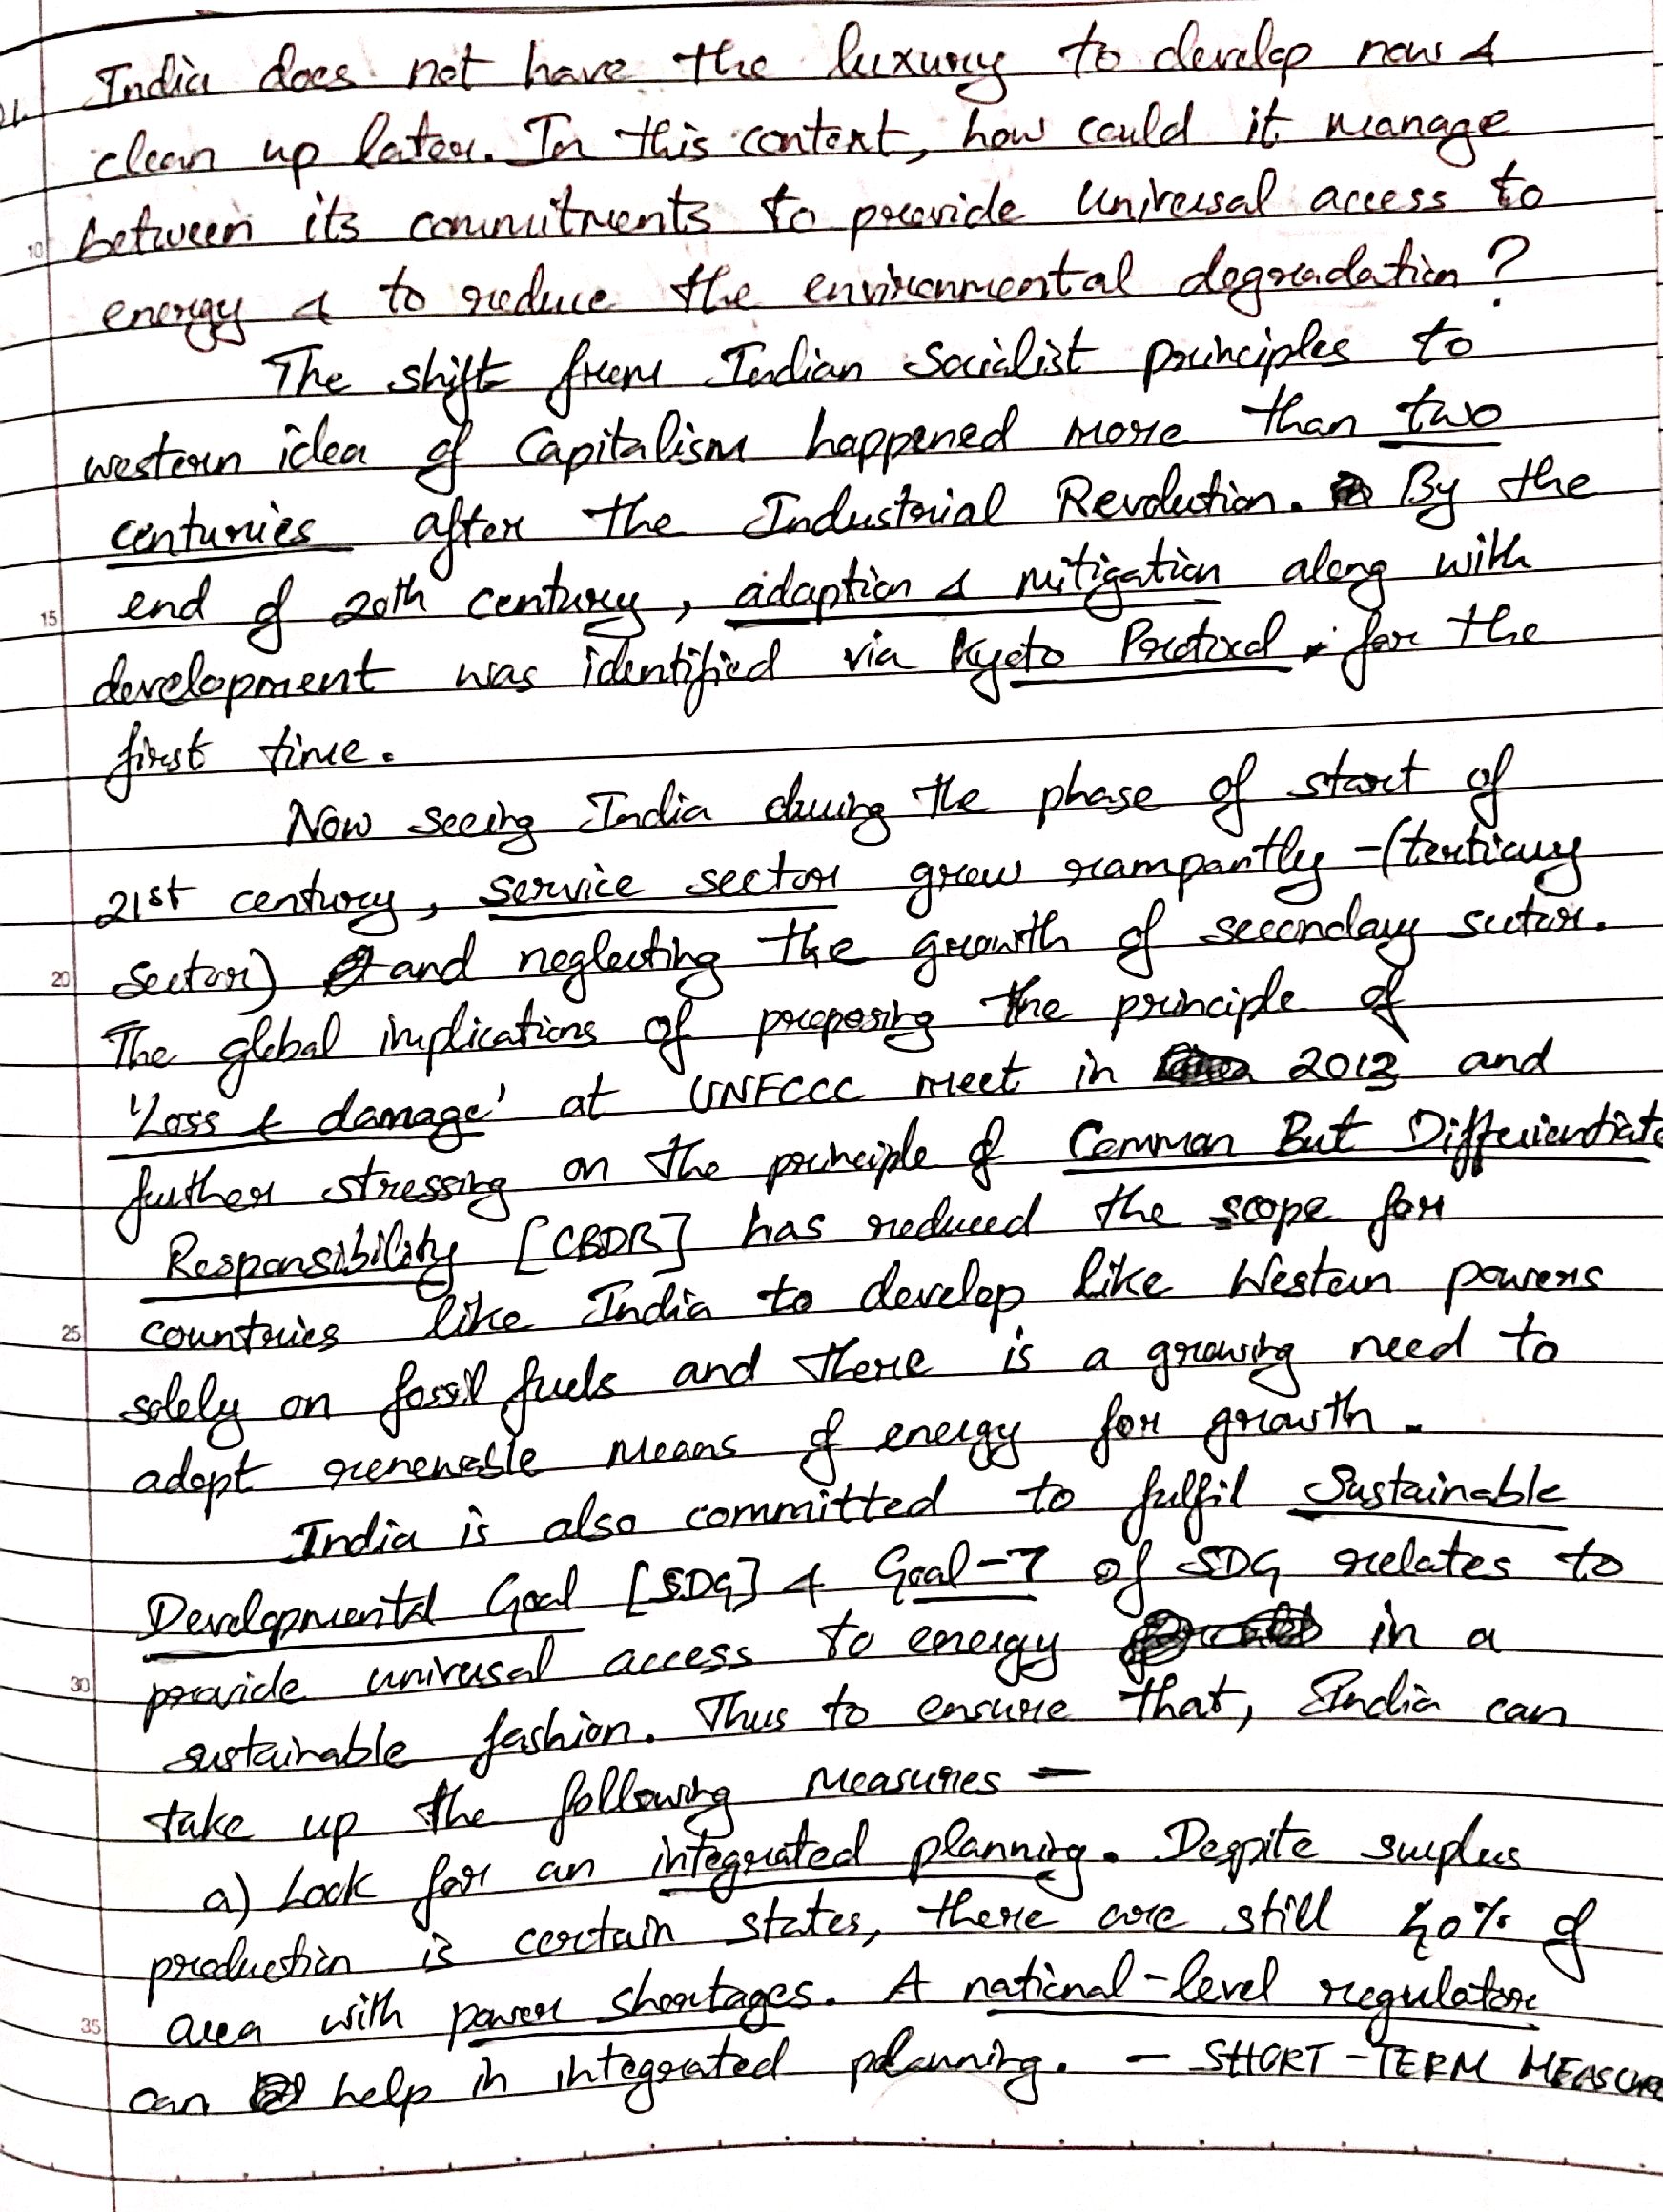 01. India does not have the luxury to develop now &
clean up later. In this context, how could it manage
between its commitments to provide universal access to
10 energy & to reduce the environmental degradation?
The shift from Indian Socialist principles to
western idea of Capitalism happened more than two
centuries after the Industrial Revolution. By the
15 end of 20th century, adaption & mitigation along with
development was identified via Kyoto Protocol for the
first time.
Now seeing India during the phase of start of
21st century, service sector grew rampantly - (tertiary
20 sector) and neglecting the growth of secondary sector.
The global implications of proposing the principle of
'Loss & damage' at UNFCCC meet in 2013 and
further stressing on the principle of Common But
Responsibility [CBDR] has reduced the scope for
25 countries like India to develop like Western powers
solely on fossil fuels and there is a growing need to
adopt renewable means of energy for growth.
India is also committed to fulfil Sustainable
Developmental Goal [SDG] & Goal-7 of SDG relates to
30 provide universal access to energy in a
sustainable fashion. Thus to ensure that, India can
take up the following measures -
a) Look for an integrated planning. Despite surplus
production is certain states, there are still 40% of
35 area with power shortages. A national-level regulator
can help in integrated planning. - SHORT-TERM MEASURE